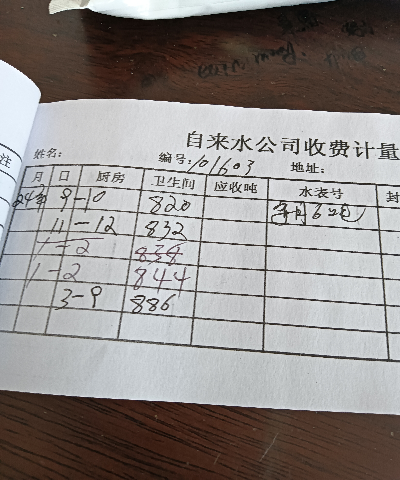 自来水公司收费计量
姓名: 编号:101603 地址:
月 日 厨房 卫生间 应收吨 水表号 封
24年 9-10 820
11-12 832
1-2 834
1-2 844
3-9 886
注